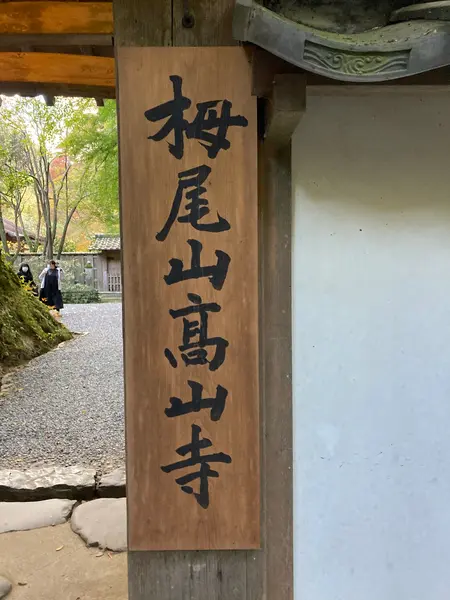 栂尾山髙山寺